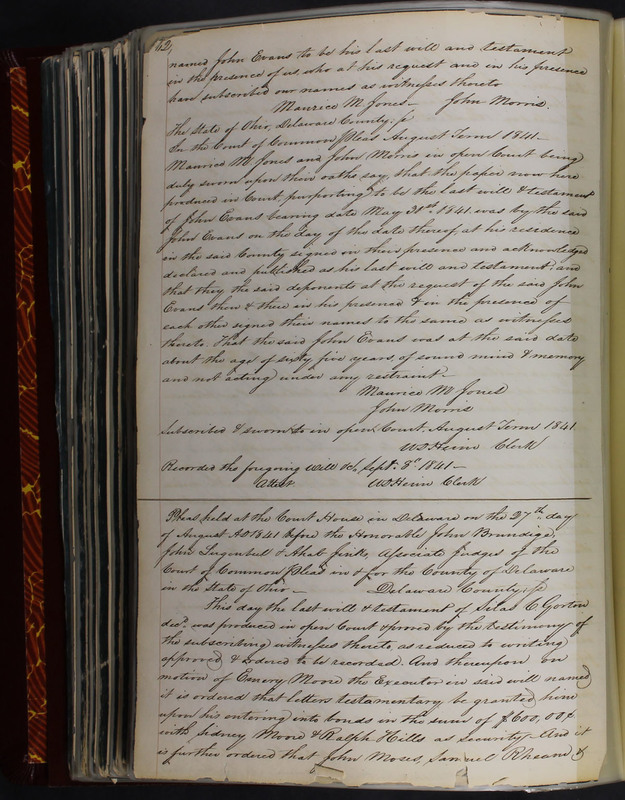 62,
named John Evans to be his last will and testament
in the presence of us who at his request and in his presence
have subscribed our names as witnesses thereto
Maurice M. Jones – John Morris.
The State of Ohio, Delaware County, ss
In the Court of Common Pleas August Term 1841–
Maurice M. Jones and John Morris in open Court being
duly sworn upon their oaths say, that the paper now here
produced in Court, purporting to be the last will & testament
of John Evans bearing date May 31st 1841 was by the said
John Evans on the day of the date thereof, at his residence
in the said County signed in their presence and acknowledged
declared and published as his last will and testament, and
that they the said deponents at the request of the said John
Evans then & there in his presence & in the presence of
each other signed their names to the same as witnesses
thereto. That the said John Evans was at the said date
about the age of sixty five years, of sound mind & memory
and not acting under any restraint –
Maurice M Jones
John Morris
Subscribed & sworn to in open Court, August Term 1841
Clerk
Recorded the foregoing Will &c, Sept. 8th 1841 –
Attest Clerk
Pleas held at the Court House in Delaware on the 27th day
of August AD 1841 before the Honorable John Brundige,
John & Ahab Jinks, Associate Judges of the
Court of Common Pleas in & for the County of Delaware
in the State of Ohio – Delaware County, ss
This day the last will & testament of Silas C Gorton
decd was produced in open Court & proved by the testimony of
the subscribing witnesses thereto, as reduced to writing
approved & ordered to be recorded. And thereupon on
motion of Emery Moore the Executor in said will named
it is ordered that letters testamentary be granted him
upon his entering into bonds in the sum of $600,00
with Sidney Moore & Ralph Hills as security – And it
is further ordered that John Moses, Samuel Rheem &